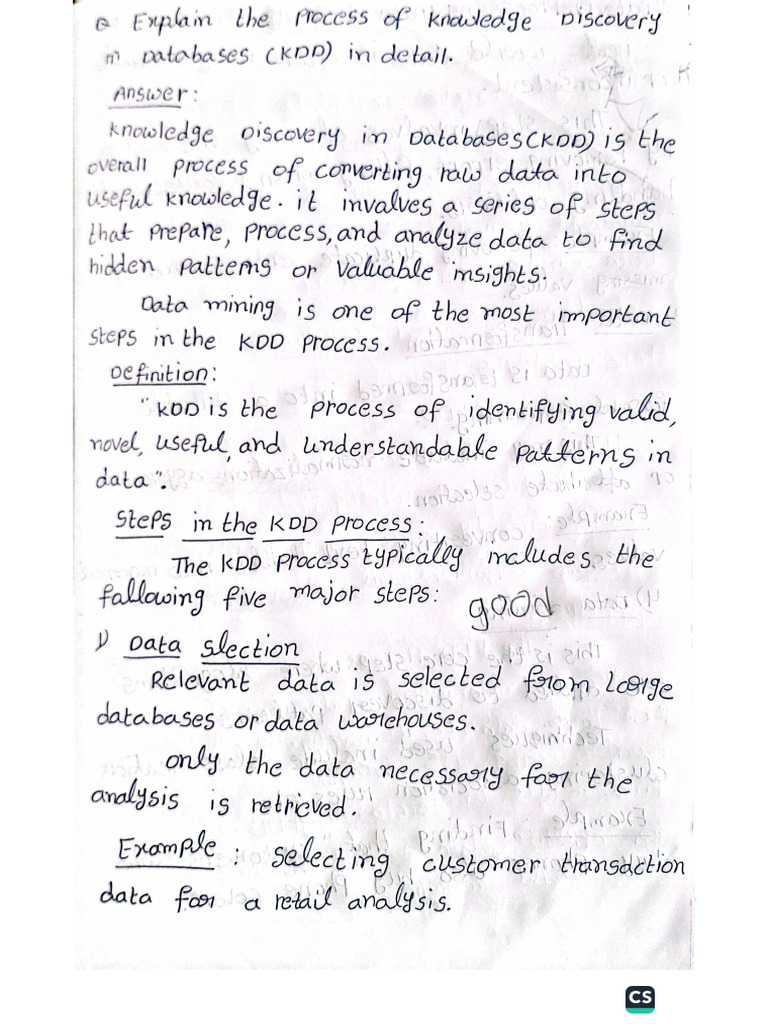 Q Explain the process of knowledge Discovery
in Databases (KDD) in detail.
Answer:
Knowledge Discovery in Databases (KDD) is the
overall process of converting raw data into
useful knowledge. it involves a series of steps
that prepare, process, and analyze data to find
hidden patterns or valuable insights.
Data mining is one of the most important
steps in the KDD process.
Definition:
"KDD is the process of identifying valid,
novel, useful, and understandable patterns in
data".
Steps in the KDD process:
The KDD process typically includes the
fallowing five major steps:
good
1) Data slection
Relevant data is selected from large
databases or data warehouses.
only the data necessary for the
analysis is retrieved.
Example: selecting customer transaction
data for a retail analysis.
CS